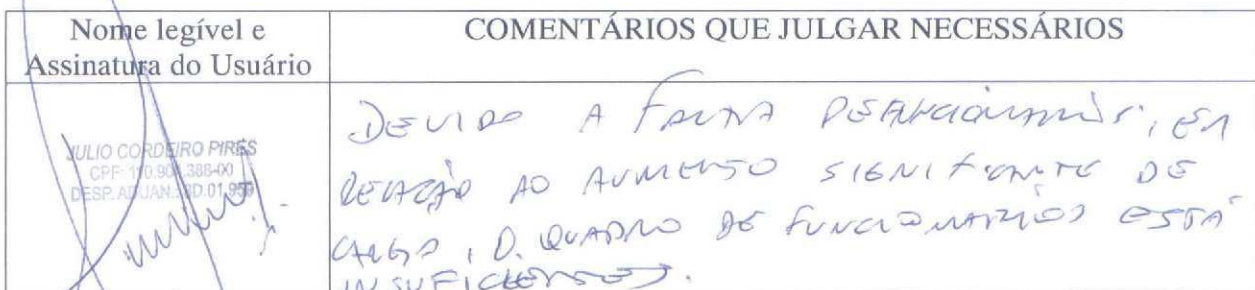 Nome legível e
Assinatura do Usuário
COMENTÁRIOS QUE JULGAR NECESSÁRIOS
JULIO CORDEIRO PIRES
DESP. ADUAN.
DEVIDO A FALTA DE FUNCIONÁRIOS, EM
RELAÇÃO AO AUMENTO SIGNIFICANTE DE
CARGA, O QUADRO DE FUNCIONARIOS ESTÁ
INSUFICIENTES.